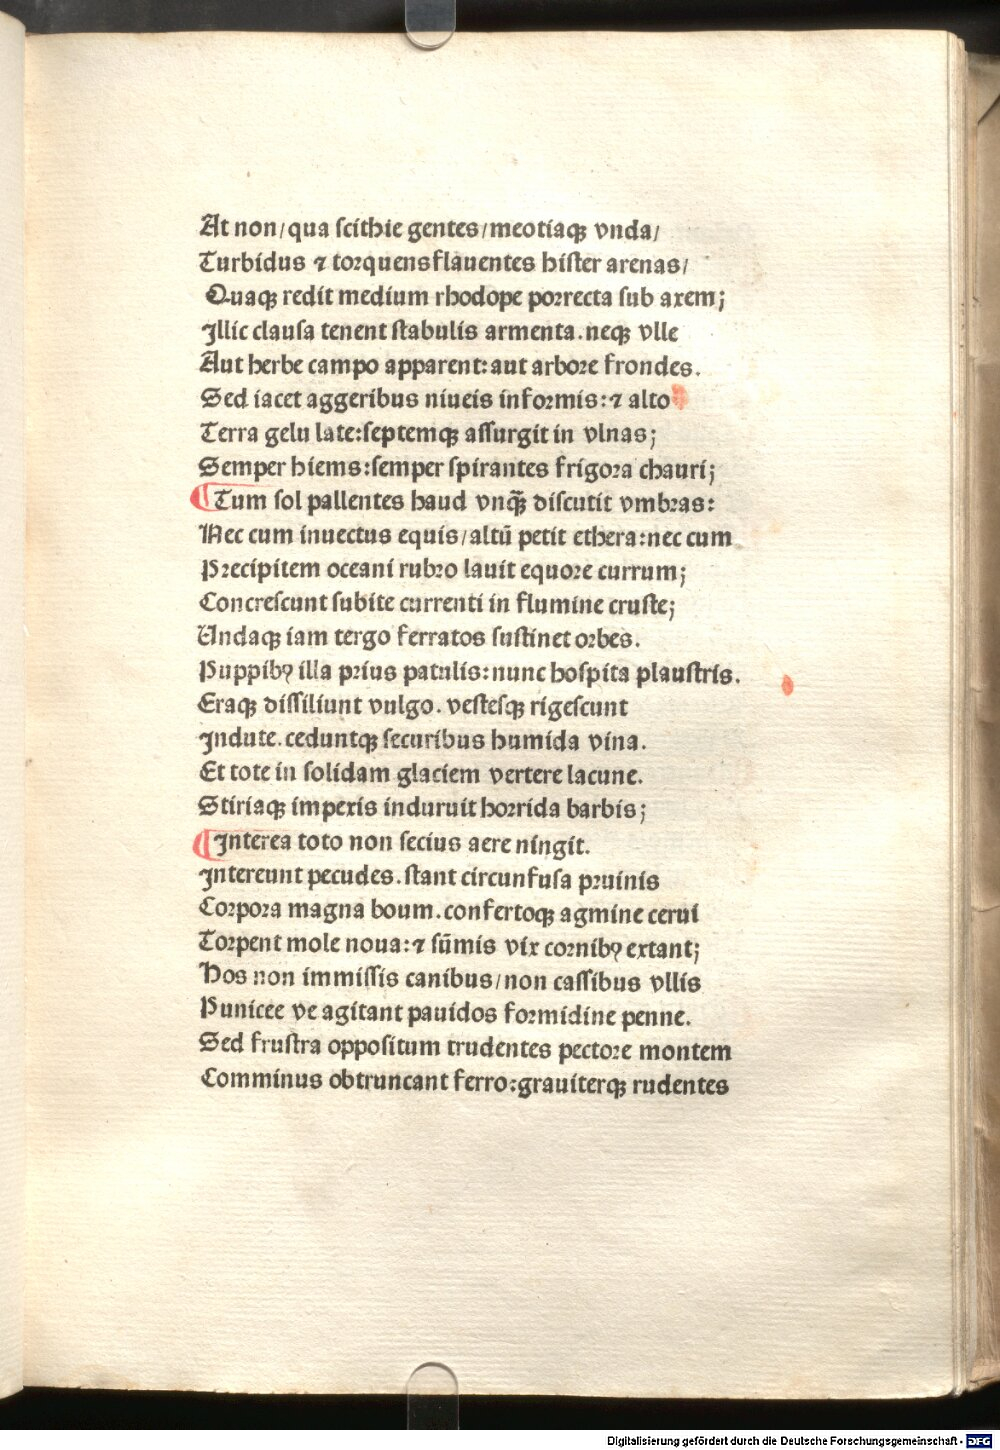 At non/qua scithie gentes/meotiaqꝫ vnda/
Turbidus ⁊ torquensflauentes hister arenas/
Quaqꝫ redit medium rhodope porrecta sub axem;
Illic clausa tenent stabulis armenta.neqꝫ vlle
Aut herbe campo apparent:aut arbore frondes.
Sed iacet aggeribus niueis informis:⁊ alto
Terra gelu late:septemqꝫ assurgit in vlnas;
Semper hiems:semper spirantes frigora chauri;
¶Tum sol pallentes haud vnqᷓꝫ discutit vmbras:
Nec cum inuectus equis/altū petit ethera:nec cum
Precipitem oceani rubro lauit equore currum;
Concrescunt subite currenti in flumine cruste;
Undaqꝫ iam tergo ferratos sustinet orbes.
Puppibꝰ illa prius patulis:nunc hospita plaustris.
Eraqꝫ dissiliunt vulgo.vestesqꝫ rigescunt
Indute.ceduntqꝫ securibus humida vina.
Et tote in solidam glaciem vertere lacune.
Stiriaqꝫ impexis induruit horrida barbis;
¶Interea toto non secius aere ningit.
Intereunt pecudes.stant circunfusa pruinis
Corpora magna boum.confertoqꝫ agmine cerui
Torpent mole noua:⁊ sūmis vix cornibꝰ extant;
Hos non immissis canibus/non cassibus vllis
Punicee ve agitant pauidos formidine penne.
Sed frustra oppositum trudentes pectore montem
Comminus obtruncant ferro:grauiterqꝫ rudentes
Digitalisierung gefördert durch die Deutsche Forschungsgemeinschaft - DFG